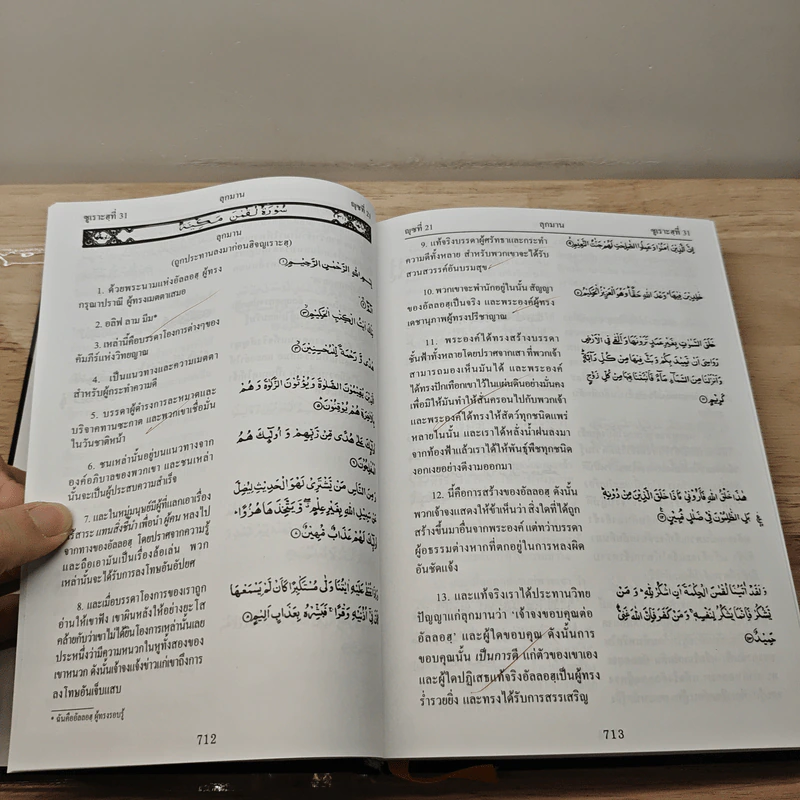 ซูเราะฮฺที่ 31
ลุกมาน
ญุซที่ 21
سُورَةُ لُقْمَنَ مَكِّيَّةٌ
ลุกมาน
(ถูกประทานลงมาก่อนฮิจญเราะฮฺ)
1. ด้วยพระนามแห่งอัลลอฮฺ ผู้ทรง
กรุณาปราณี ผู้ทรงเมตตาเสมอ
2. อลิฟ ลาม มีม*
3. เหล่านี้คือบรรดาโองการต่างๆของ
คัมภีร์แห่งวิทยญาณ
4. เป็นแนวทางและความเมตตา
สำหรับผู้กระทำความดี
5. บรรดาผู้ดำรงการละหมาดและ
บริจาคทานซะกาต และพวกเขาเชื่อมั่น
ในวันชาติหน้า
6. ชนเหล่านั้นอยู่บนแนวทางจาก
องค์อภิบาลของพวกเขา และชนเหล่า
นั้นจะเป็นผู้ประสบความสำเร็จ
7. และในหมู่มนุษย์มีผู้ที่แลกเอาเรื่อง
ไร้สาระ แทนสิ่งชี้นำ เพื่อนำ ผู้คน หลงไป
จากทางของอัลลอฮฺ โดยปราศจากความรู้
และถือเอามันเป็นเรื่องล้อเล่น พวก
เหล่านั้นจะได้รับการลงโทษอันอัปยศ
8. และเมื่อบรรดาโองการของเราถูก
อ่านให้เขาฟัง เขาผินหลังให้อย่างยะโส
คล้ายกับว่าเขาไม่ได้ยินโองการเหล่านั้นเลย
ประหนึ่งว่ามีความหนวกในหูทั้งสองของ
เขาหนวก ดังนั้นเจ้าจงแจ้งข่าวแก่เขาถึงการ
ลงโทษอันเจ็บแสบ
* ฉันคืออัลลอฮฺ ผู้ทรงรอบรู้
بِسْمِ اللهِ الرَّحْمٰنِ الرَّحِيْمِ
الٓمّٓ
تِلْكَ اٰيٰتُ الْكِتٰبِ الْحَكِيْمِ
هُدًى وَّرَحْمَةً لِّلْمُحْسِنِيْنَ
الَّذِيْنَ يُقِيْمُوْنَ الصَّلٰوةَ وَيُؤْتُوْنَ الزَّكٰوةَ وَهُمْ
بِالْاٰخِرَةِ هُمْ يُوْقِنُوْنَ
اُولٰٓئِكَ عَلٰى هُدًى مِّنْ رَّبِّهِمْ وَاُولٰٓئِكَ هُمُ
الْمُفْلِحُوْنَ
وَمِنَ النَّاسِ مَنْ يَّشْتَرِيْ لَهْوَ الْحَدِيْثِ لِيُضِلَّ
عَنْ سَبِيْلِ اللهِ بِغَيْرِ عِلْمٍ وَّيَتَّخِذَهَا هُزُوًا
اُولٰٓئِكَ لَهُمْ عَذَابٌ مُّهِيْنٌ
وَاِذَا تُتْلٰى عَلَيْهِ اٰيٰتُنَا وَلّٰى مُسْتَكْبِرًا كَاَنْ لَّمْ يَسْمَعْهَا
كَاَنَّ فِيْٓ اُذُنَيْهِ وَقْرًا فَبَشِّرْهُ بِعَذَابٍ اَلِيْمٍ
712
ญุซที่ 21
ลุกมาน
ซูเราะฮฺที่ 31
9. แท้จริงบรรดาผู้ศรัทธาและกระทำ
ความดีทั้งหลาย สำหรับพวกเขาจะได้รับ
สวนสวรรค์อันบรมสุข
10. พวกเขาจะพำนักอยู่ในนั้น สัญญา
ของอัลลอฮฺเป็นจริง และพระองค์ผู้ทรง
เดชานุภาพผู้ทรงปรีชาญาณ
11. พระองค์ได้ทรงสร้างบรรดา
ชั้นฟ้าทั้งหลายโดยปราศจากเสา ที่พวกเจ้า
สามารถมองเห็นมันได้ และพระองค์
ได้ทรงปักเทือกเขาไว้ในแผ่นดินอย่างมั่นคง
เพื่อมิให้มันทำให้สั่นคลอนไปกับพวกเจ้า
และพระองค์ได้ทรงให้สัตว์ทุกชนิดแพร่
หลายในนั้น และเราได้หลั่งน้ำฝนลงมา
จากท้องฟ้าแล้วเราได้ให้พันธุ์พืชทุกชนิด
งอกเงยอย่างดีงามออกมา
12. นี่คือการสร้างของอัลลอฮฺ ดังนั้น
พวกเจ้าจงแสดงให้ข้าเห็นว่า สิ่งใดที่ได้ถูก
สร้างขึ้นมาอื่นจากพระองค์ แต่ทว่าบรรดา
ผู้อธรรมต่างหากที่ตกอยู่ในการหลงผิด
อันชัดแจ้ง
13. และแท้จริงเราได้ประทานวิทย
ปัญญาแก่ลุกมานว่า ‘เจ้าจงขอบคุณต่อ
อัลลอฮฺ’ และผู้ใดขอบคุณ ดังนั้นการ
ขอบคุณนั้น เป็นการดี แก่ตัวของเขาเอง
และผู้ใดปฏิเสธแท้จริงอัลลอฮฺเป็นผู้ทรง
ร่ำรวยยิ่ง และทรงได้รับการสรรเสริญ
اِنَّ الَّذِيْنَ اٰمَنُوْا وَعَمِلُوا الصّٰلِحٰتِ لَهُمْ جَنّٰتُ النَّعِيْمِ
خٰلِدِيْنَ فِيْهَا وَعْدَ اللهِ حَقًّا وَهُوَ الْعَزِيْزُ الْحَكِيْمُ
خَلَقَ السَّمٰوٰتِ بِغَيْرِ عَمَدٍ تَرَوْنَهَا وَاَلْقٰى فِي الْاَرْضِ
رَوَاسِيَ اَنْ تَمِيْدَ بِكُمْ وَبَثَّ فِيْهَا مِنْ كُلِّ دَآبَّةٍ
وَاَنْزَلْنَا مِنَ السَّمَآءِ مَآءً فَاَنْۢبَتْنَا فِيْهَا مِنْ كُلِّ زَوْجٍ
كَرِيْمٍ
هٰذَا خَلْقُ اللهِ فَاَرُوْنِيْ مَاذَا خَلَقَ الَّذِيْنَ مِنْ دُوْنِهٖ
بَلِ الظّٰلِمُوْنَ فِيْ ضَلٰلٍ مُّبِيْنٍ
وَلَقَدْ اٰتَيْنَا لُقْمٰنَ الْحِكْمَةَ اَنِ اشْكُرْ لِلّٰهِ وَمَنْ
يَّشْكُرْ فَاِنَّمَا يَشْكُرُ لِنَفْسِهٖ وَمَنْ كَفَرَ فَاِنَّ اللهَ غَنِيٌّ
حَمِيْدٌ
713